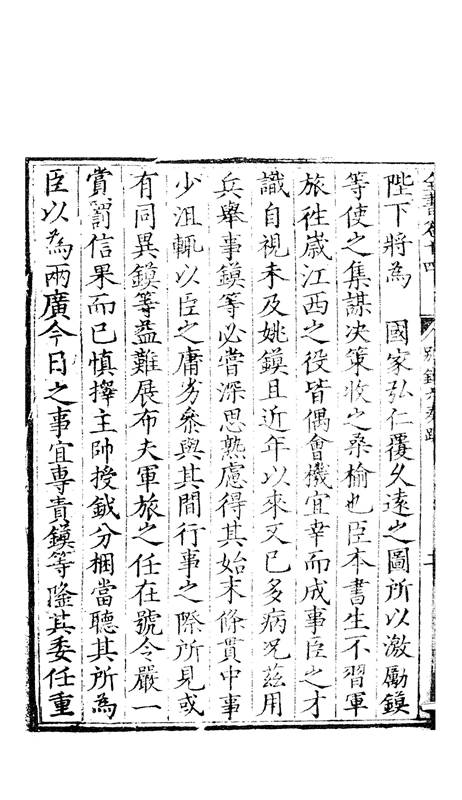 全書卷十四
陛下將為　國家弘仁覆久遠之圖所以激勵鏌
等使之集謀决策收之桑榆也臣本書生不習軍
旅徃歲江西之役皆偶會機宜幸而成事臣之才
識自視未及姚鏌且近年以來又已多病况茲用
兵舉事鏌等必嘗深思熟慮得其始末條貫中事
少沮輒以臣之庸劣叅與其間行事之際所見或
有同異鏌等益難展布夫軍旅之任在號令嚴一
賞罰信果而已慎擇主帥授鉞分梱當聽其所為
臣以為兩廣今日之事宜專責鏌等隆其委任重